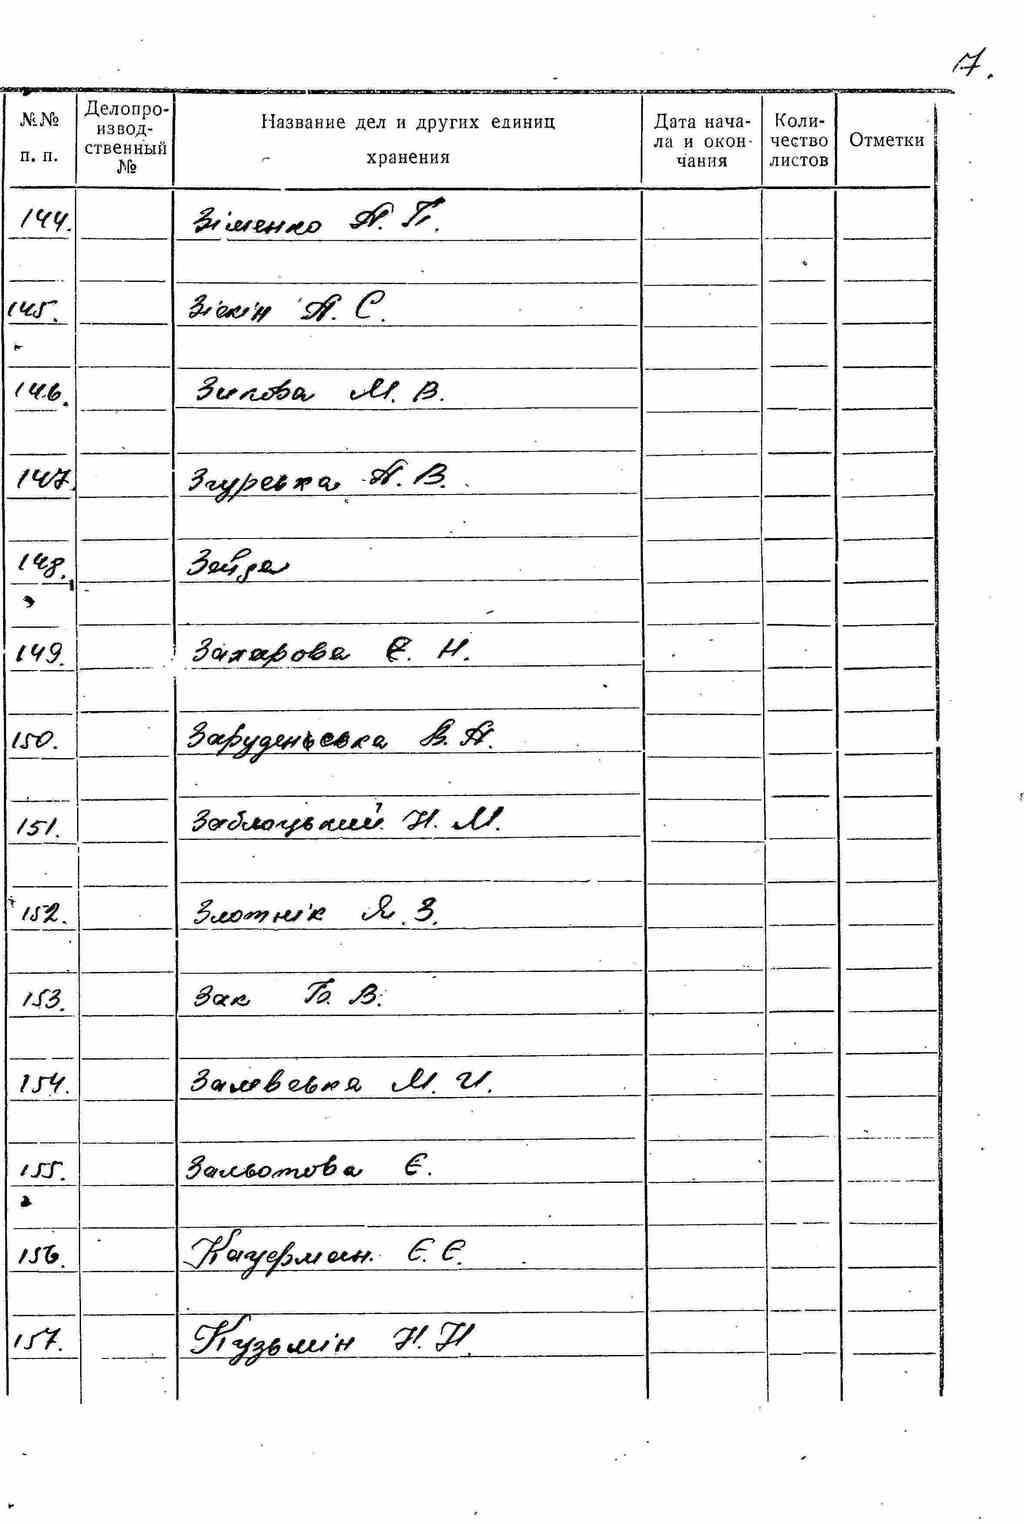 17.
№№ п. п.
Делопроизвод-ственный №
Название дел и других единиц хранения
Дата нача-ла и окон-чания
Коли-чество листов
Отметки
144. Зіменко А. П.
145. Зіскін А. С.
146. Зилова М. В.
147. Згурська А. В.
148. Зайда
149. Захарова Є. Н.
150. Заруденьська В. А.
151. Заблоцький Н. М.
152. Злотнік Я. З.
153. Зак Б. В.
154. Залевська М. И.
155. Зальотова Є.
156. Кацерман Є. Є.
157. Кузьмін Н. Н.